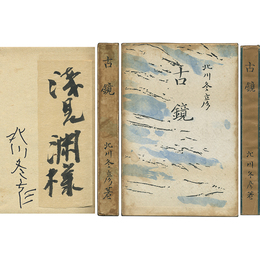 浅見淵様
北川冬彦
古鏡
北川冬彦著
北川冬彦
古鏡
古鏡
北川冬彦著